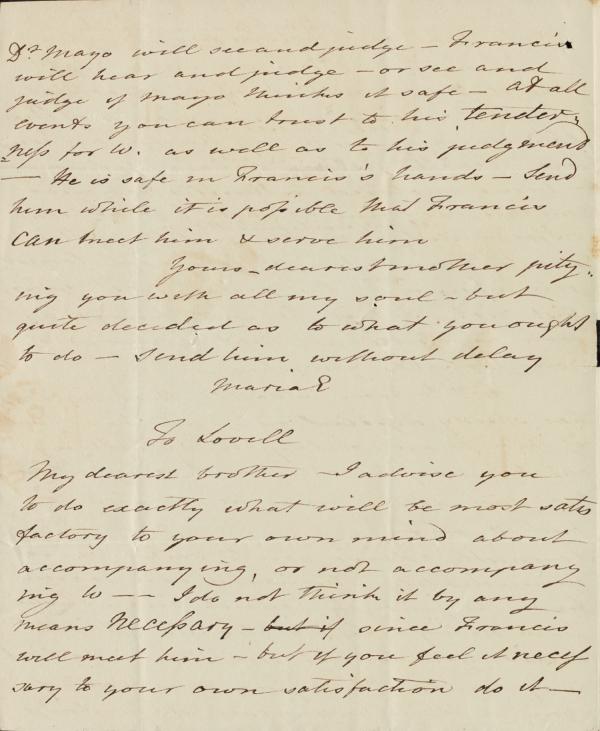 Dr Mayo will see and judge – Francis
will hear and judge – or see and
judge if Mayo thinks it safe – at all
events you can trust to his tender-
-ness for W. as well as to his judgment
– He is safe in Francis's hands – Send
him while it is possible that Francis
can meet him & serve him
Yours – dearest mother pity-
ing you with all my soul – but
quite decided as to what you ought
to do – Send him without delay
Maria E
To Lovell
My dearest brother – I advise you
to do exactly what will be most satis
factory to your own mind about
accompanying, or not accompany
ing W – – I do not think it by any
means necessary – but if since Francis
will meet him – but if you feel it neces
sary to your own satisfaction do it –